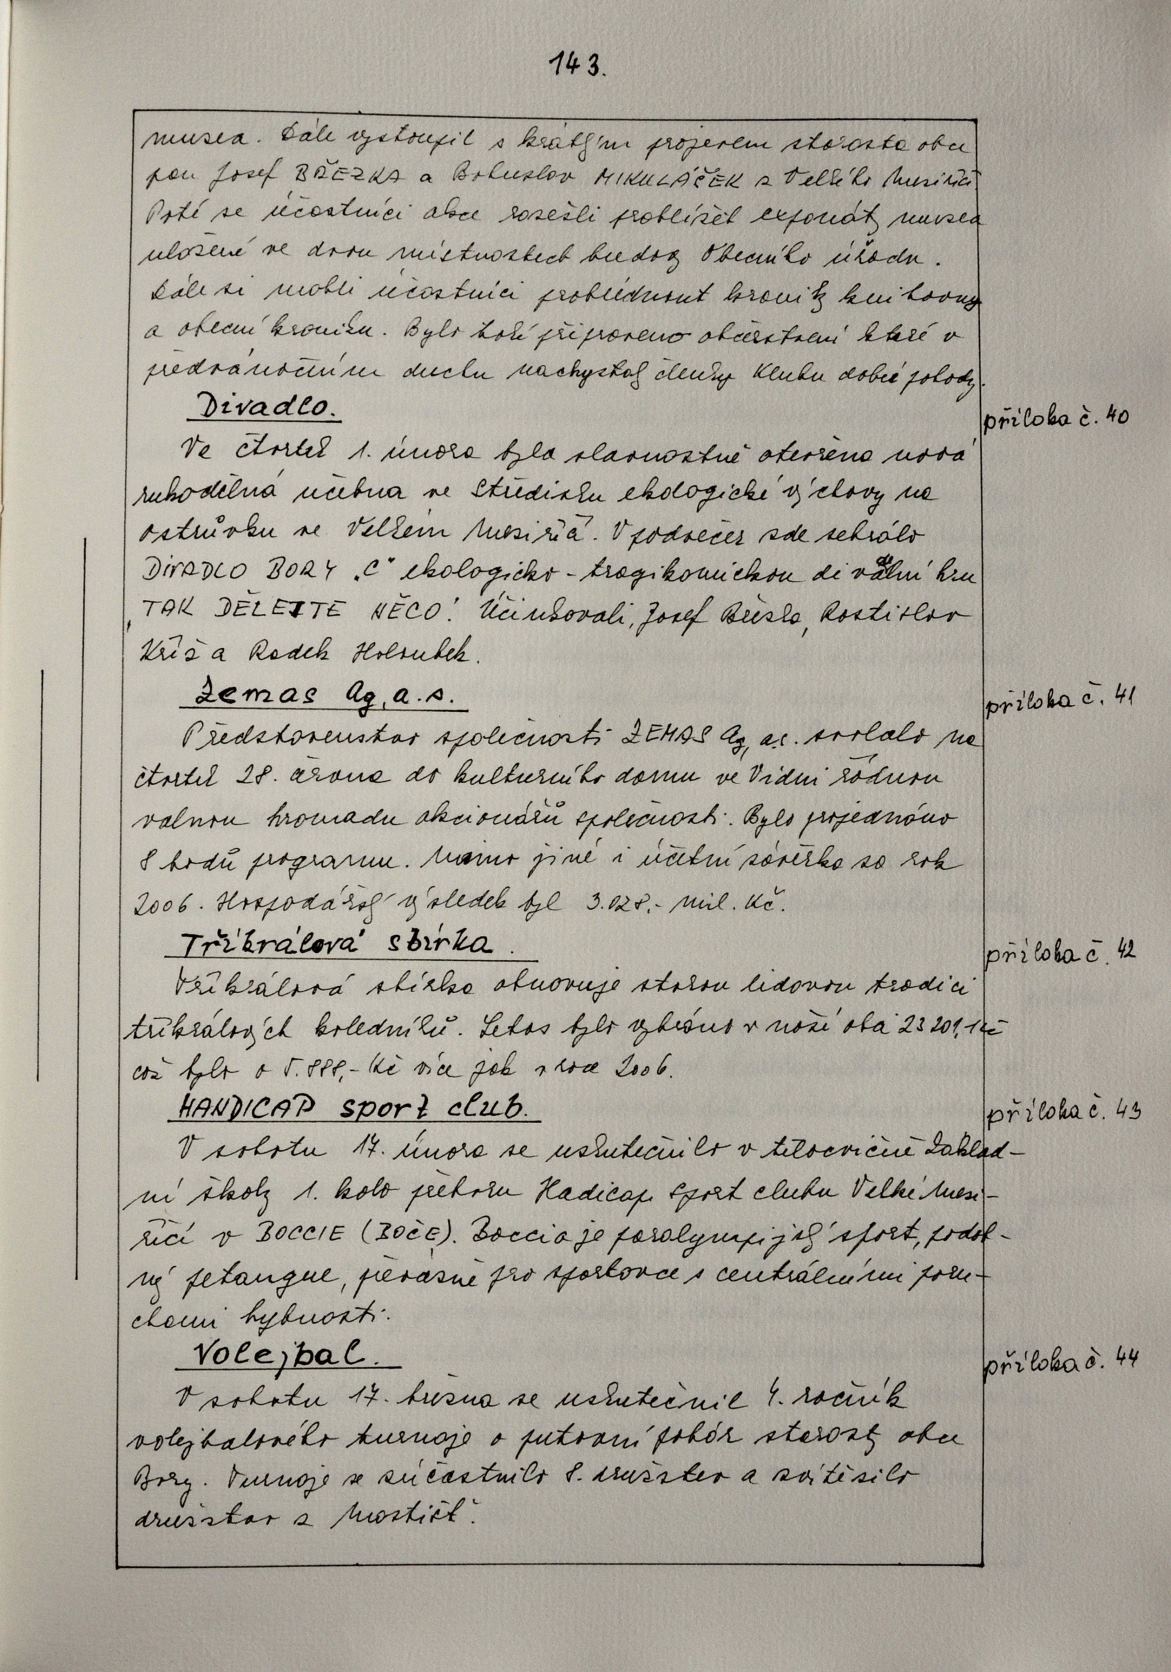 143.
musea. Dále vystoupil s krátkým projevem starosta obce
pan Josef BŘEZKA a Bohuslav MIKULÁČEK z Velkého Meziříčí
Poté se účastníci akce rozešli prohlížet exponáty musea
uložené ve dvou místnostech budovy Obecního úřadu.
Dále si mohli účastníci prohlédnout kroniky knihovny
a obecní kroniku. Bylo též připraveno občerstvení které v
předvánočním duchu nachystaly členky Klubu dobré pohody.
Divadlo.
příloha č. 40
Ve čtvrtek 1. února byla slavnostně otevřena nová
rukodělná učebna ve Středisku ekologické výchovy na
ostrůvku ve Velkém Meziříčí. V podvečer zde sehrálo
DIVADLO BORY „C" ekologicko-tragikomickou divadelní hru
„TAK DĚLEJTE NĚCO! Účinkovali, Josef Březka, Rostislav
Kříž a Radek Holoubek.
Zemas Ag, a.s.
příloha č. 41
Představenstvo společnosti ZEMAS Ag, a.s. svolalo na
čtvrtek 28. června do kulturního domu ve Vídni řádnou
valnou hromadu akcionářů společnosti. Bylo projednáno
8 bodů programu. Mimo jiné i účetní závěrka za rok
2006. Hospodářský výsledek byl 3.028,- mil. Kč.
Tříkrálová sbírka.
příloha č. 42
Tříkrálová sbírka obnovuje starou lidovou tradici
tříkrálových koledníků. Letos bylo vybráno v naší obci 23 201,- Kč
což bylo o 5.888,- Kč více jak v roce 2006.
HANDICAP sport club.
příloha č. 43
V sobotu 17. února se uskutečnilo v tělocvičně Základ-
ní školy 1. kolo přeboru Hadicap Sport clubu Velké Mezi-
říčí v BOCCIE (BOČE). Boccia je paralympijský sport, podob-
ný petangue, převážně pro sportovce s centrálními poru-
chami hybnosti.
Volejbal.
příloha č. 44
V sobotu 17. března se uskutečnil 4. ročník
volejbalového turnaje o putovní pohár starosty obce
Bory. Turnaje se zúčastnilo 8. družstev a zvítězilo
družstvo z Mostišť.